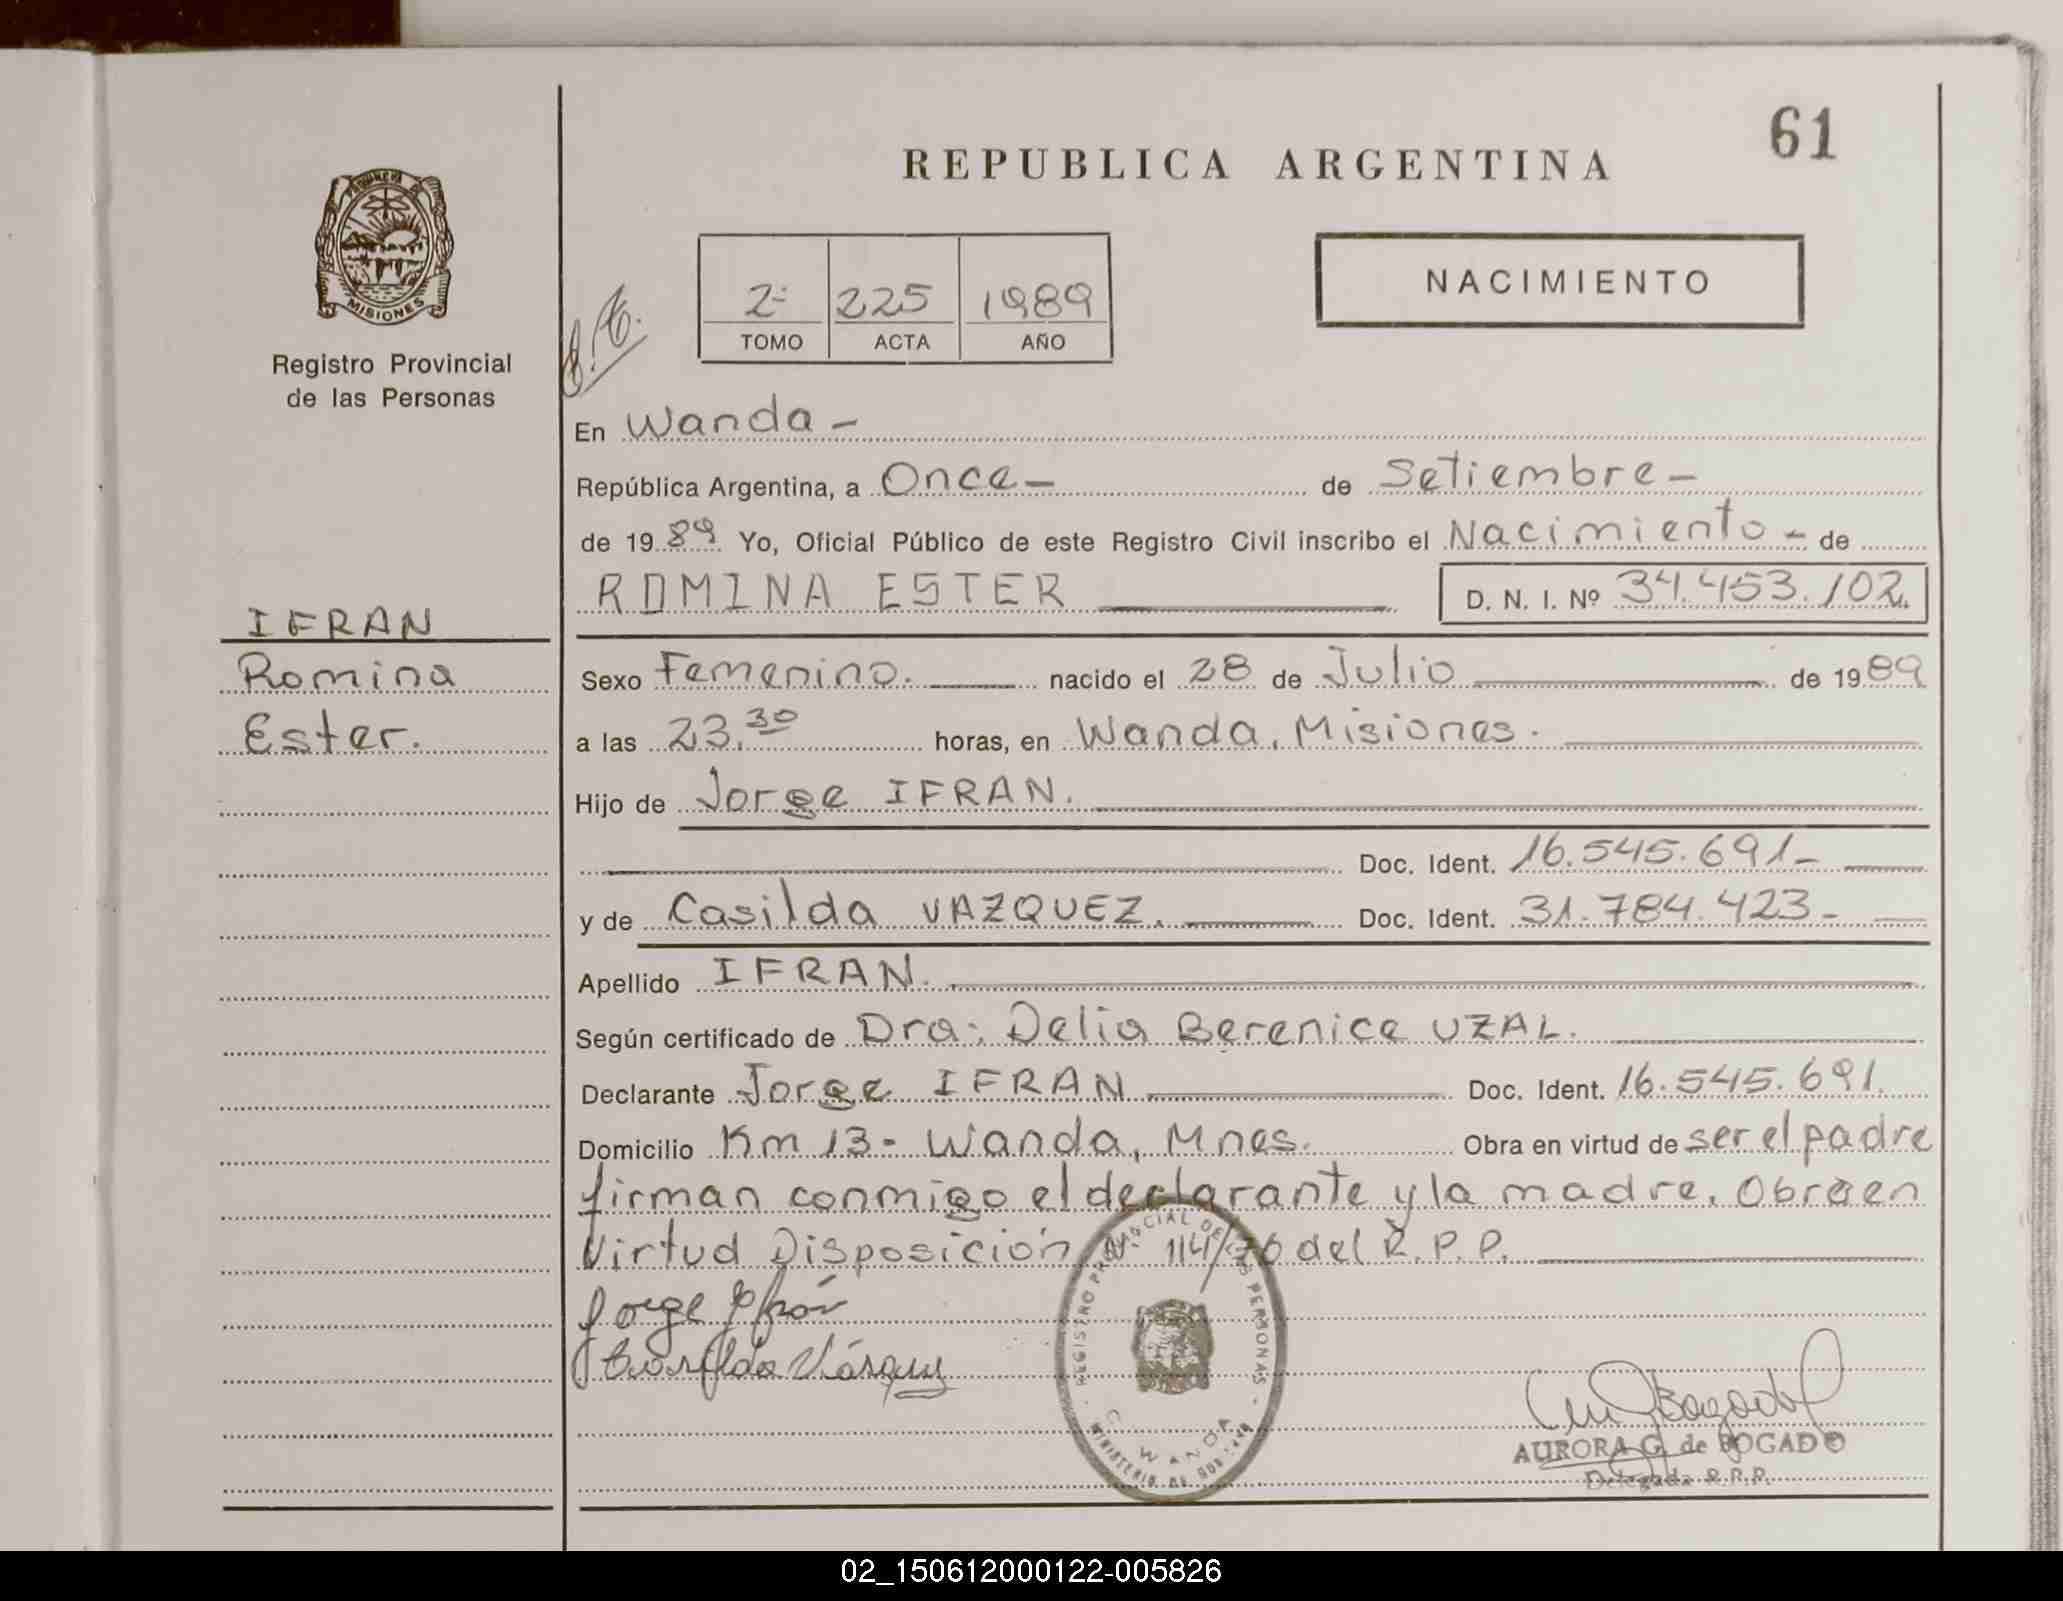 61
REPUBLICA ARGENTINA
PROVINCIA DE
MISIONES
Registro Provincial
de las Personas
2º 225 1989
TOMO ACTA AÑO
NACIMIENTO
En Wanda -
República Argentina, a Once - de Setiembre -
de 1989 Yo, Oficial Público de este Registro Civil inscribo el Nacimiento - de
ROMINA ESTER D. N. I. Nº 34.453.102.
IFRAN
Romina
Ester.
Sexo Femenino. nacido el 28 de Julio de 1989
a las 23.30 horas, en Wanda, Misiones.
Hijo de Jorge IFRAN.
Doc. Ident. 16.545.691-
y de Casilda VAZQUEZ. Doc. Ident. 31.784.423-
Apellido IFRAN.
Según certificado de Dra: Delia Berenice UZAL.
Declarante Jorge IFRAN Doc. Ident. 16.545.691.
Domicilio Km 13- Wanda, Mnes. Obra en virtud de ser el padre
firman conmigo el declarante y la madre. Obra en
Virtud Disposición Nº 114/76 del R.P.P.
Jorge Ifrán
Casilda Vázquez
REGISTRO PROVINCIAL DE LAS PERSONAS
WANDA
MINISTERIO DE GOBIERNO
Bogado
AURORA G. de BOGADO
Delegada R.P.P.
02_150612000122-005826